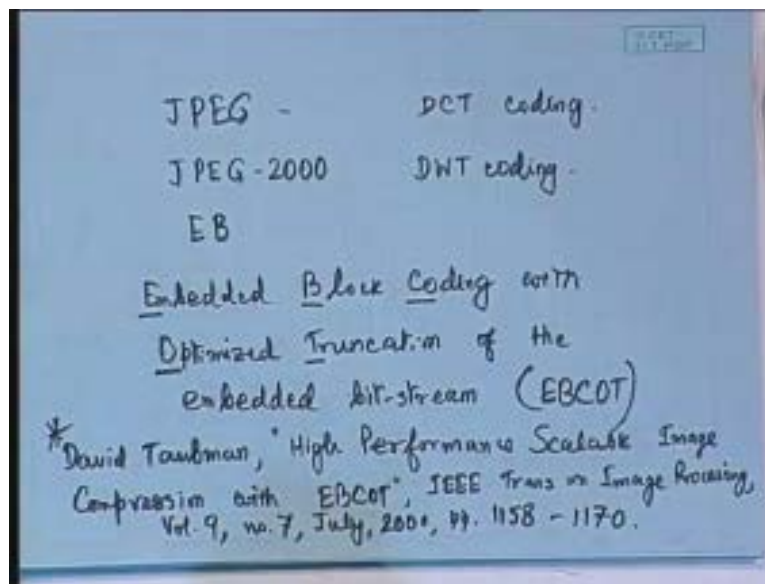 JPEG - DCT coding.
JPEG-2000 DWT coding.
EB
Embedded Block Coding with
Optimized Truncation of the
embedded bit-stream (EBCOT)
* David Taubman, "High Performance Scalable Image
Compression with EBCOT", IEEE Trans on Image Processing,
Vol. 9, no. 7, July, 2000, pp. 1158 - 1170.